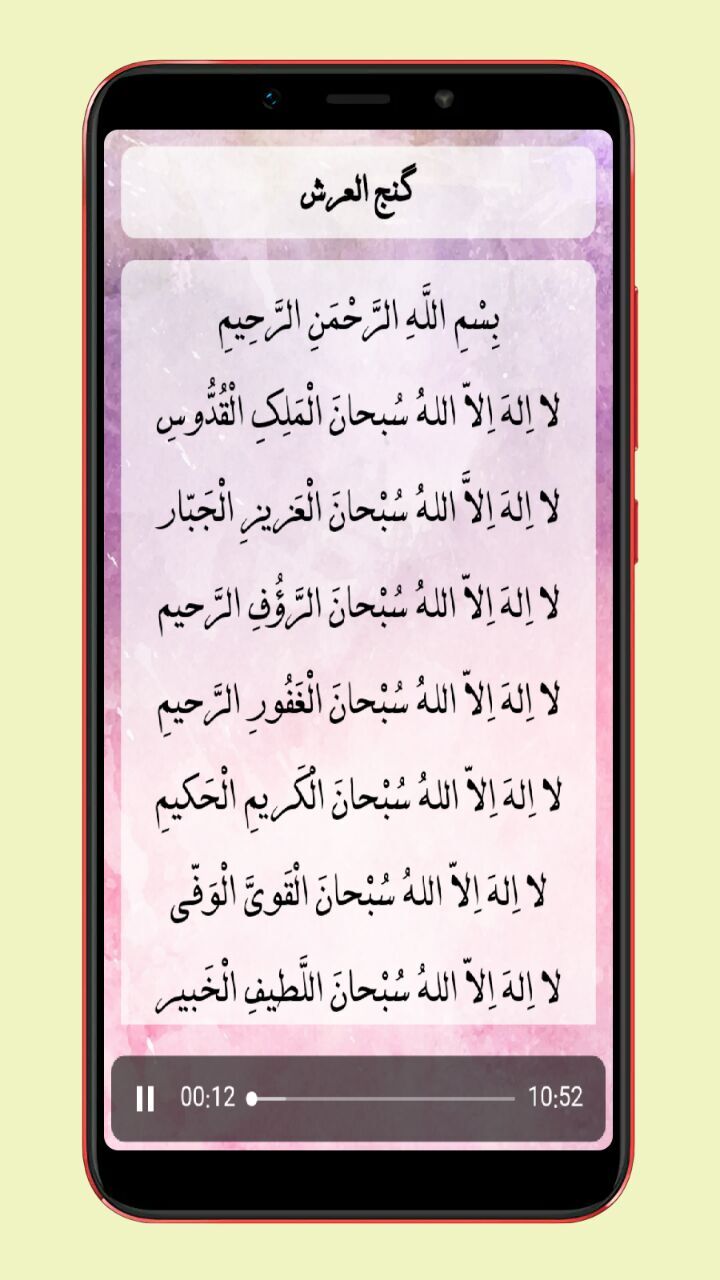 گنج العرش
بِسْمِ اللَّهِ الرَّحْمَنِ الرَّحِيمِ
لا اِلهَ اِلاّ اللهُ سُبحانَ الْمَلِکِ الْقُدُّوسِ
لا اِلهَ اِلاَّ اللهُ سُبْحانَ الْعَزیزِ الْجَبّار
لا اِلهَ اِلاّ اللهُ سُبْحانَ الرَّؤُفِ الرَّحیم
لا اِلهَ اِلاّ اللهُ سُبْحانَ الْغَفُورِ الرَّحیمِ
لا اِلهَ اِلاّ اللهُ سُبْحانَ الْکَریمِ الْحَکیمِ
لا اِلهَ اِلاّ اللهُ سُبْحانَ الْقَویَّ الْوَفّی
لا اِلهَ اِلاّ اللهُ سُبْحانَ اللَّطیفِ الْخَبیر
00:12 10:52